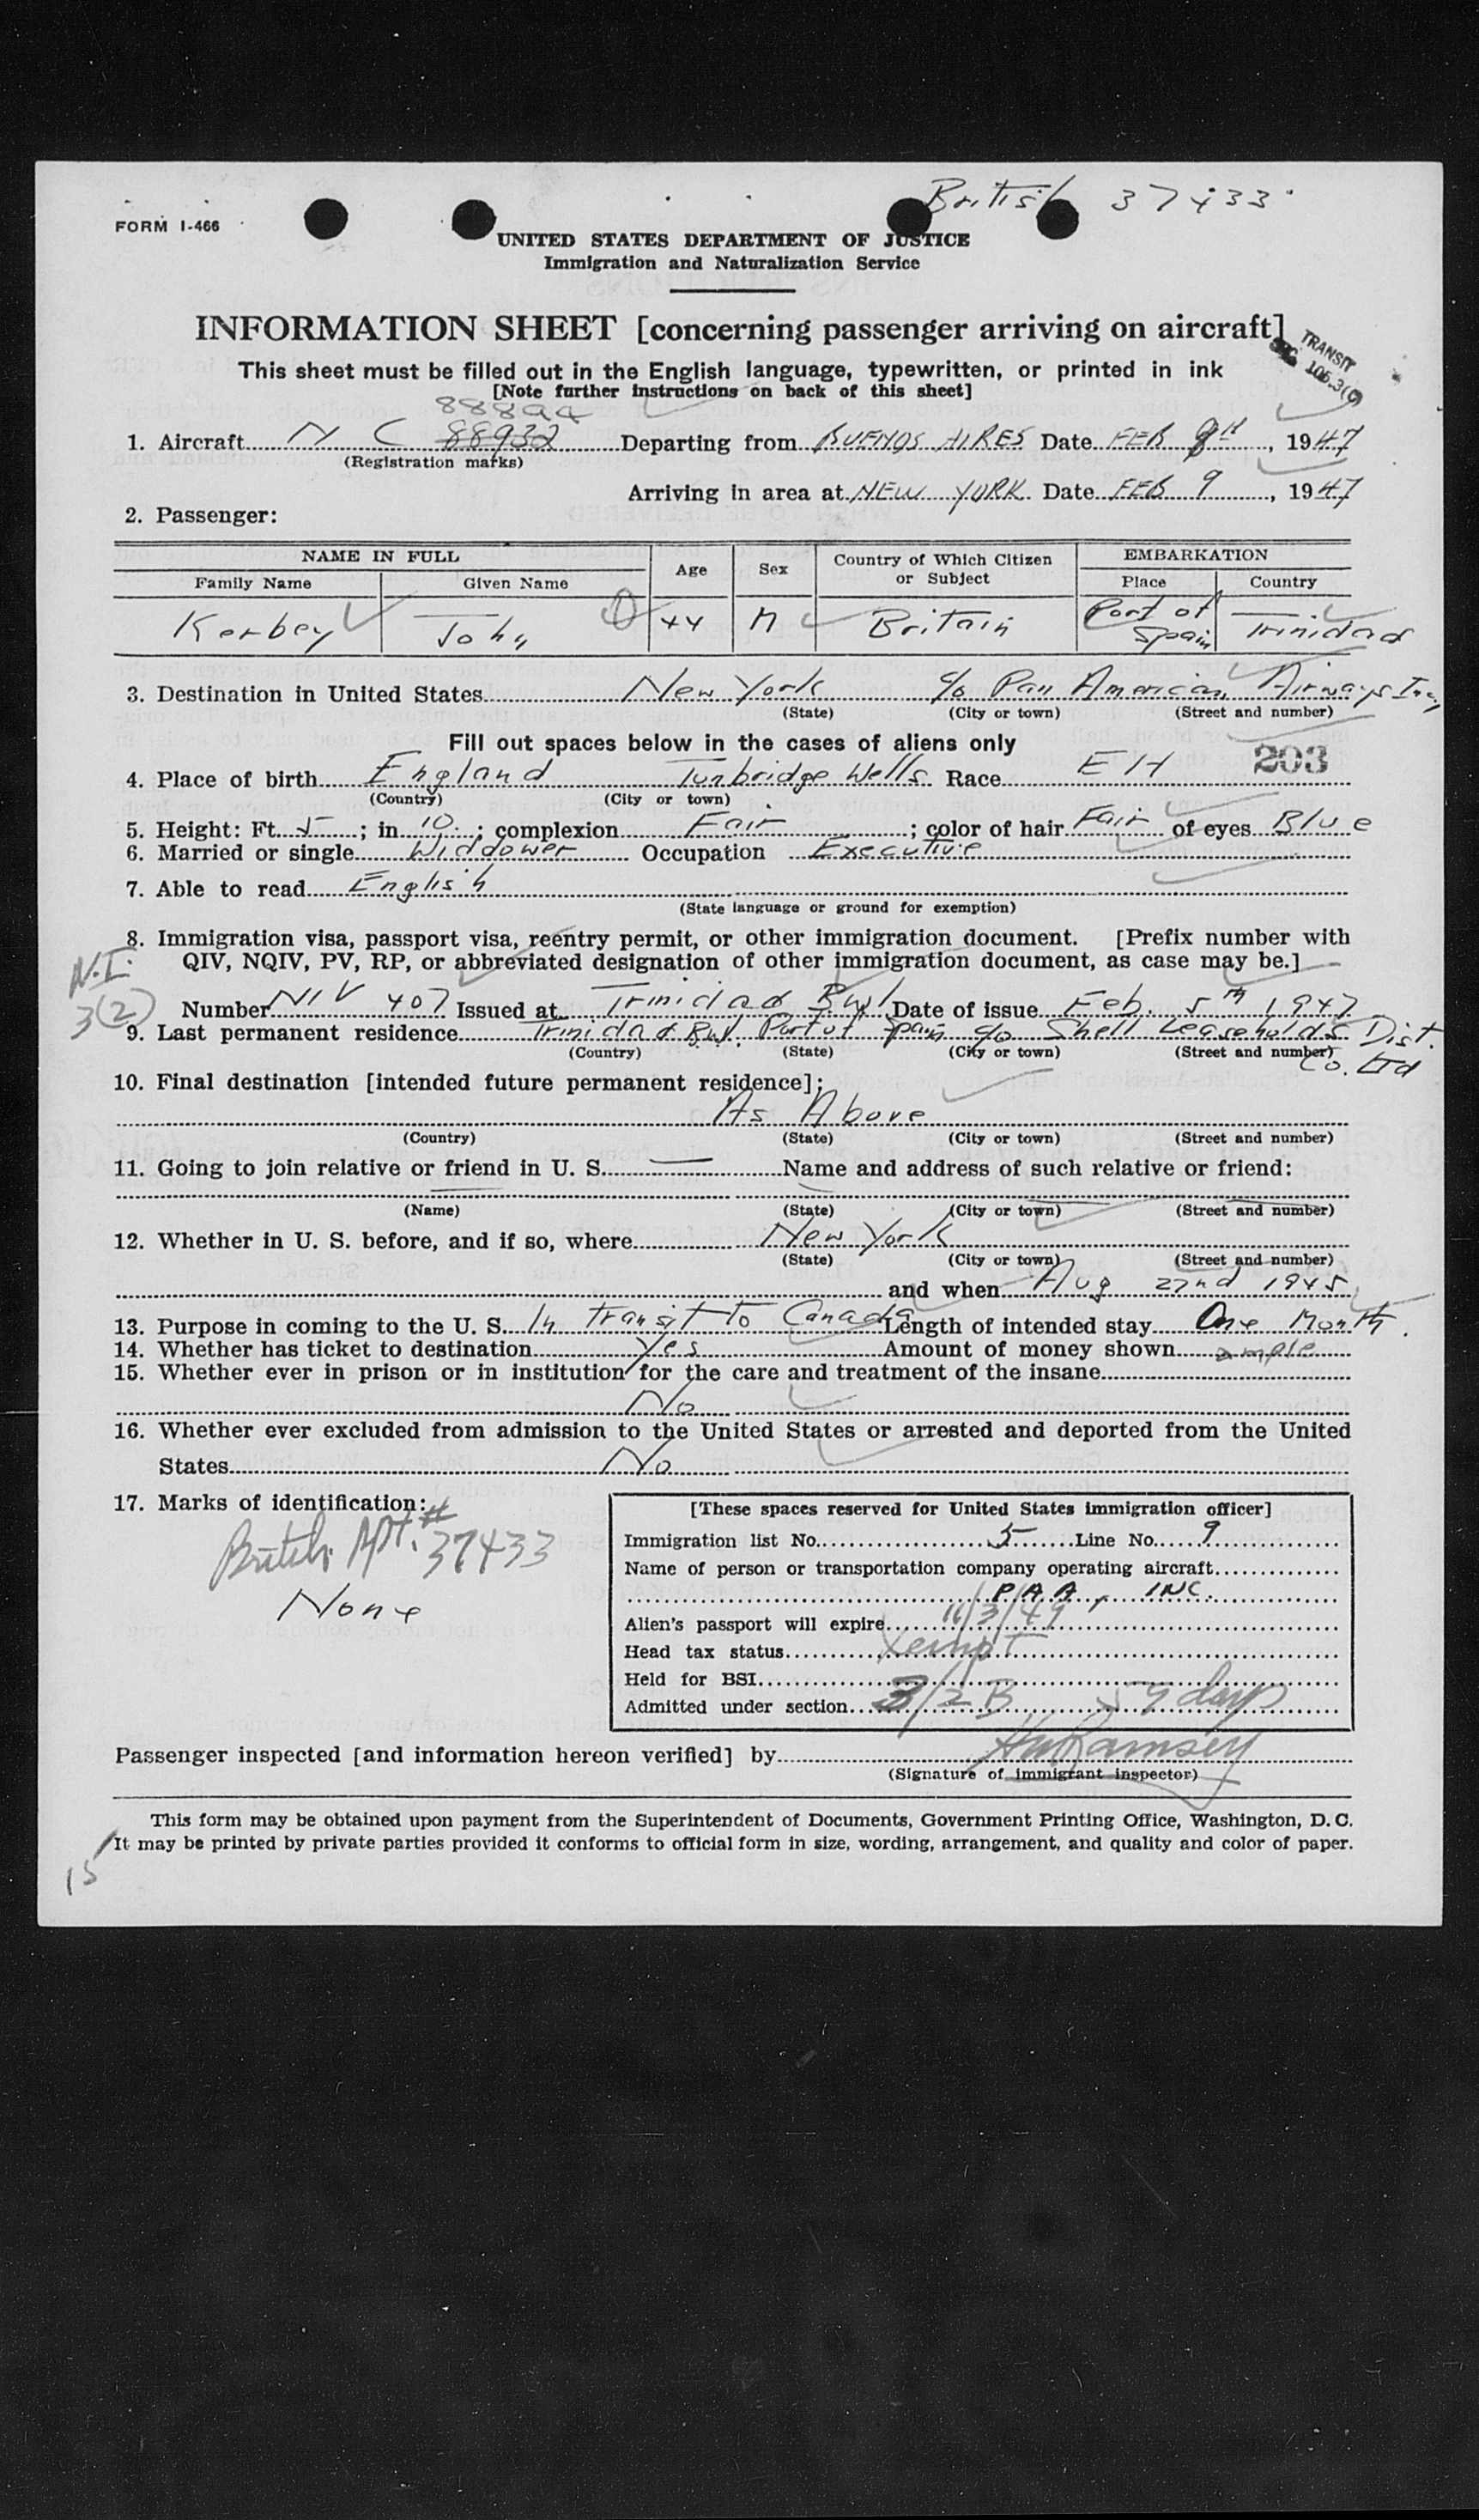 British 37433
FORM I-466
UNITED STATES DEPARTMENT OF JUSTICE
Immigration and Naturalization Service
INFORMATION SHEET [concerning passenger arriving on aircraft]
TRANSIT
105.3(c)
This sheet must be filled out in the English language, typewritten, or printed in ink
[Note further instructions on back of this sheet]
88894
1. Aircraft N C 88932 Departing from BUENOS AIRES Date FEB 8TH, 1947
(Registration marks)
Arriving in area at NEW YORK Date FEB 9, 1947
2. Passenger:
NAME IN FULL Age Sex Country of Which Citizen or Subject EMBARKATION
Family Name Given Name Place Country
Kerbey John 44 M Britain Port of Spain Trinidad
3. Destination in United States New York c/o Pan American Airways Inc,
(State) (City or town) (Street and number)
Fill out spaces below in the cases of aliens only
203
4. Place of birth England Tunbridge Wells Race EH
(Country) (City or town)
5. Height: Ft. 5; in 10.; complexion Fair; color of hair Fair of eyes Blue
6. Married or single Widdower Occupation Executive
7. Able to read English
(State language or ground for exemption)
8. Immigration visa, passport visa, reentry permit, or other immigration document. [Prefix number with
QIV, NQIV, PV, RP, or abbreviated designation of other immigration document, as case may be.]
N.I.
3(2)
Number NIV 407 Issued at Trinidad BWI Date of issue Feb. 5th 1947
9. Last permanent residence Trinidad BWI. Port of Spain c/o Shell Leaseholds Dist.
(Country) (State) (City or town) (Street and number)
Co. Ltd
10. Final destination [intended future permanent residence]:
As Above
(Country) (State) (City or town) (Street and number)
11. Going to join relative or friend in U. S. — Name and address of such relative or friend:
(Name) (State) (City or town) (Street and number)
12. Whether in U. S. before, and if so, where New York
(State) (City or town) (Street and number)
and when Aug 22nd 1945
13. Purpose in coming to the U. S. In transit to Canada Length of intended stay One Month.
14. Whether has ticket to destination Yes Amount of money shown ample
15. Whether ever in prison or in institution for the care and treatment of the insane
No
16. Whether ever excluded from admission to the United States or arrested and deported from the United
States No
17. Marks of identification:
British ppt. # 37433
None
[These spaces reserved for United States immigration officer]
Immigration list No. 5 Line No. 9
Name of person or transportation company operating aircraft
P.A.A., INC.
Alien's passport will expire 11/3/49
Head tax status Xempt
Held for BSI
Admitted under section 3/2 B 59 days
Passenger inspected [and information hereon verified] by HW Ramsey
(Signature of immigrant inspector)
This form may be obtained upon payment from the Superintendent of Documents, Government Printing Office, Washington, D. C.
It may be printed by private parties provided it conforms to official form in size, wording, arrangement, and quality and color of paper.
15